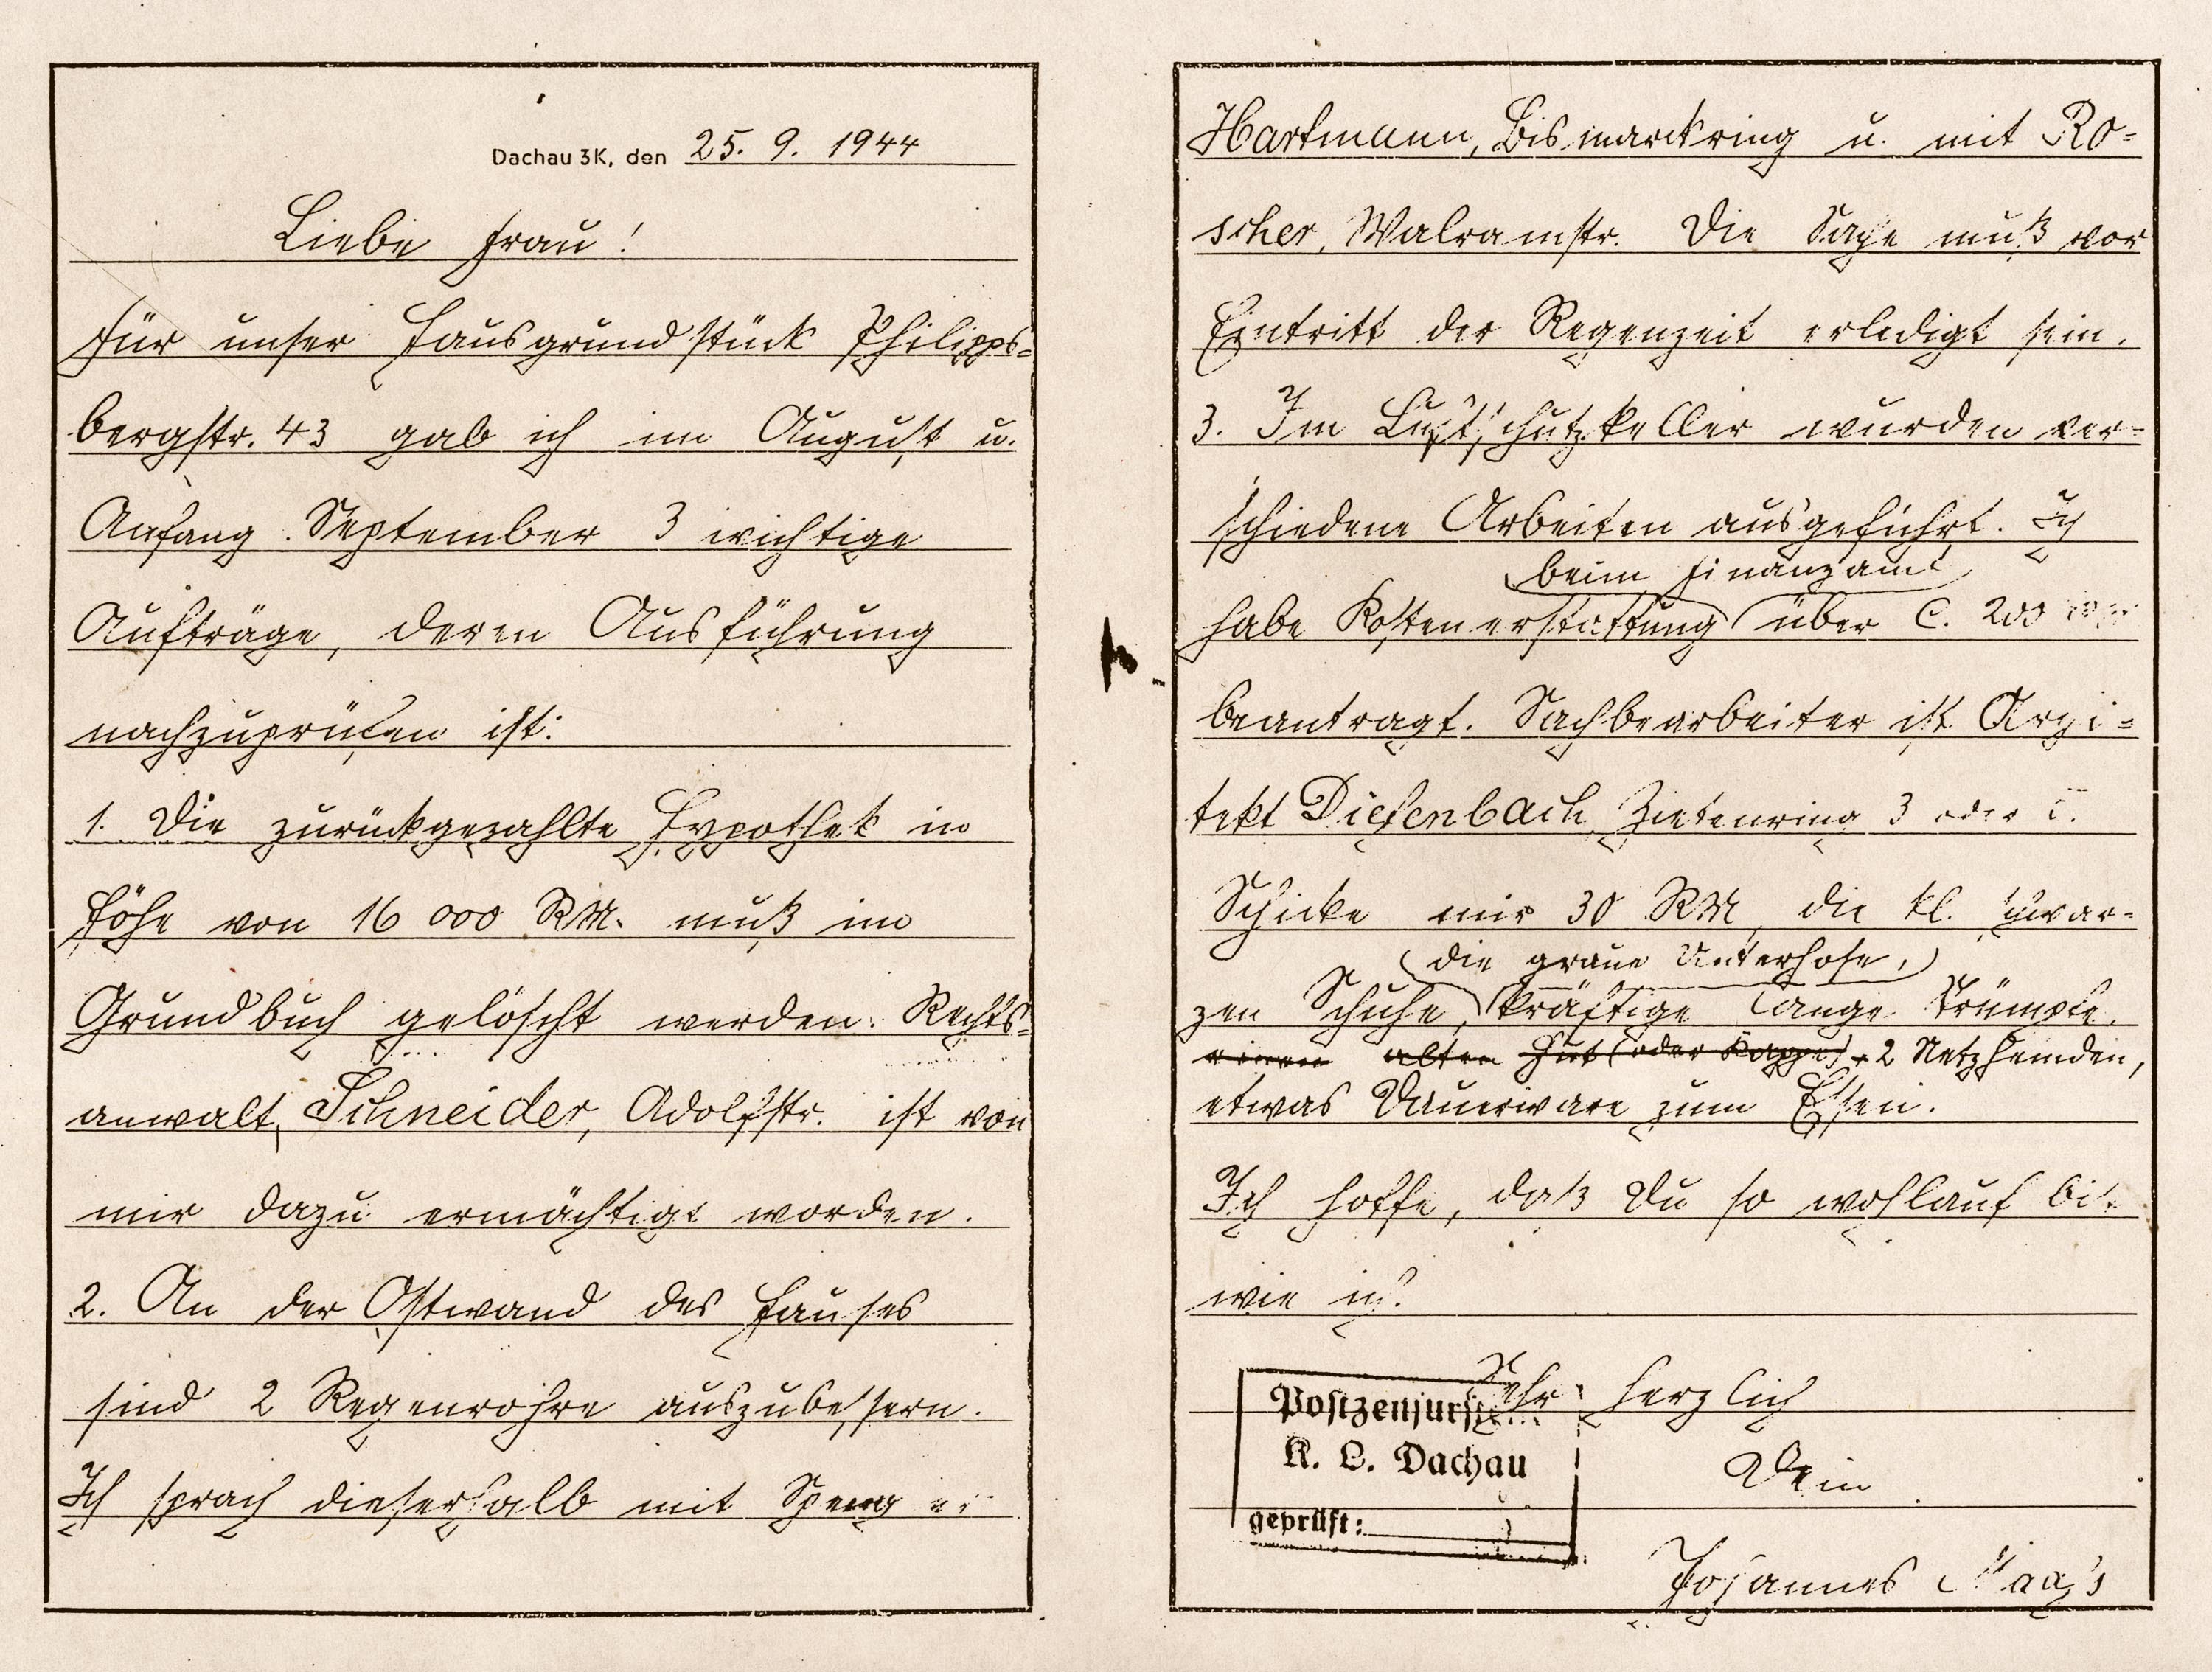 Dachau 3K, den 25. 9. 1944
Liebe Frau!
Für unser Hausgrundstück Philipps-
bergstr. 43 gab ich im August u.
Anfang September 3 wichtige
Aufträge, deren Ausführung
nachzuprüfen ist:
1. Die zurückgezahlte Hypothek in
Höhe von 16 000 RM. muß im
Grundbuch gelöscht werden. Rechts-
anwalt Schneider, Adolfstr. ist von
mir dazu ermächtigt worden.
2. An der Ostwand des Hauses
sind 2 Regenrohre auszubessern.
Ich sprach dieserhalb mit
Hartmann, Bismarckring u. mit Ro-
scher, Walramstr. Die Sache muß vor
Eintritt der Regenzeit erledigt sein.
3. Im Luftschutzkeller wurden ver-
schiedene Arbeiten ausgeführt. Ich
beim Finanzamt
habe Kostenerstattung über C. 200
beantragt. Sachbearbeiter ist Archi-
tekt Diefenbach, Zietenring 3 oder
Schicke mir 30 RM, die kl. schwar-
die graue Unterhose,
zen Schuhe, kräftige lange Strümpfe,
einen alten Hut (oder Kappe), 2 Netzhemden,
etwas Dauerware zum Essen.
Ich hoffe, daß Du so wohlauf bist
wie ich.
Sehr herzlich
Dein
Johannes
Postzensurstelle
K. L. Dachau
geprüft: